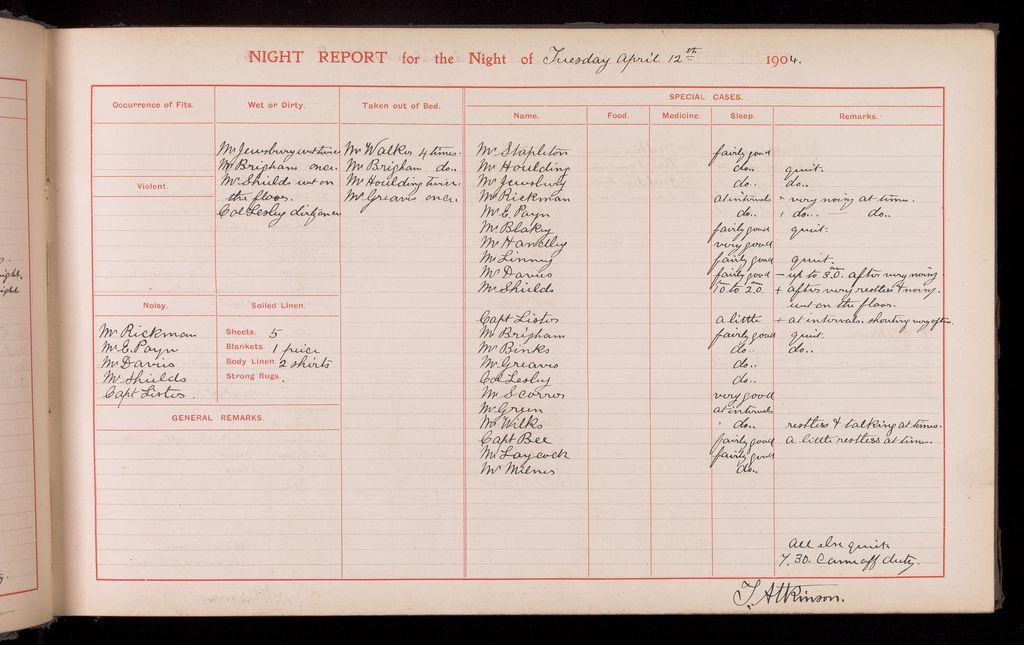 NIGHT REPORT for the Night of Tuesday April 12th 1904.
Occurrence of Fits.
Violent.
Noisy.
Mr Rickman
Mr E. Payn
Mr Davies
Mr Shields
Capt Lister.
Wet or Dirty.
Mr Jewsbury wet twice
Mr Brigham once.
Mr Shields wet on
the floor.
Col Lesley dirty once
Soiled Linen.
Sheets. 5
Blankets. 1 piece
Body Linen. 2 shirts
Strong Rugs.
GENERAL REMARKS.
Taken out of Bed.
Mr Walker 4 times.
Mr Brigham do..
Mr Houlding twice.
Mr Greaves once.
SPECIAL CASES.
Name. Food. Medicine. Sleep. Remarks.
Mr Stapleton fairly good
Mr Houlding do.. quiet.
Mr Jewsbury do.. do..
Mr Rickman at intervals + very noisy at times.
Mr E. Payn do.. do.. — do..
Mr Blakey fairly good quiet.
Mr Handley very good
Mr Linney fairly good quiet.
Mr Davies fairly good — up to 3.0 am after very noisy.
Mr Shields to 2.0 am + after very restless & noisy.
wet on the floor.
Capt Lister a little + at intervals. shouting very often.
Mr Brigham fairly good quiet.
Mr Binks do.. do..
Mr Greaves do..
Col Lesley do..
Mr Scorror very good
Mr Green at intervals
Mr Wilks do.. restless & talking at times.
Capt Bee fairly good a little restless at times.
Mr Laycock fairly good
Mr Milnes do..
All else quiet
7.30. Came off duty.
T. Atkinson.